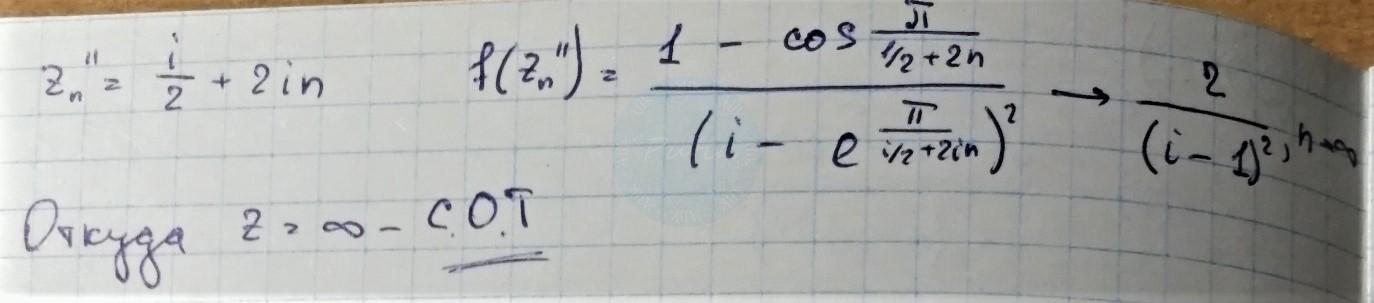 z_n'' = i/2 + 2in f(z_n'') = (1 - cos π/(1/2+2n)) / (i - e^(π/(i/2+2in)))² → 2/(i-1)², n→∞
Откуда z = ∞ - С.О.Т